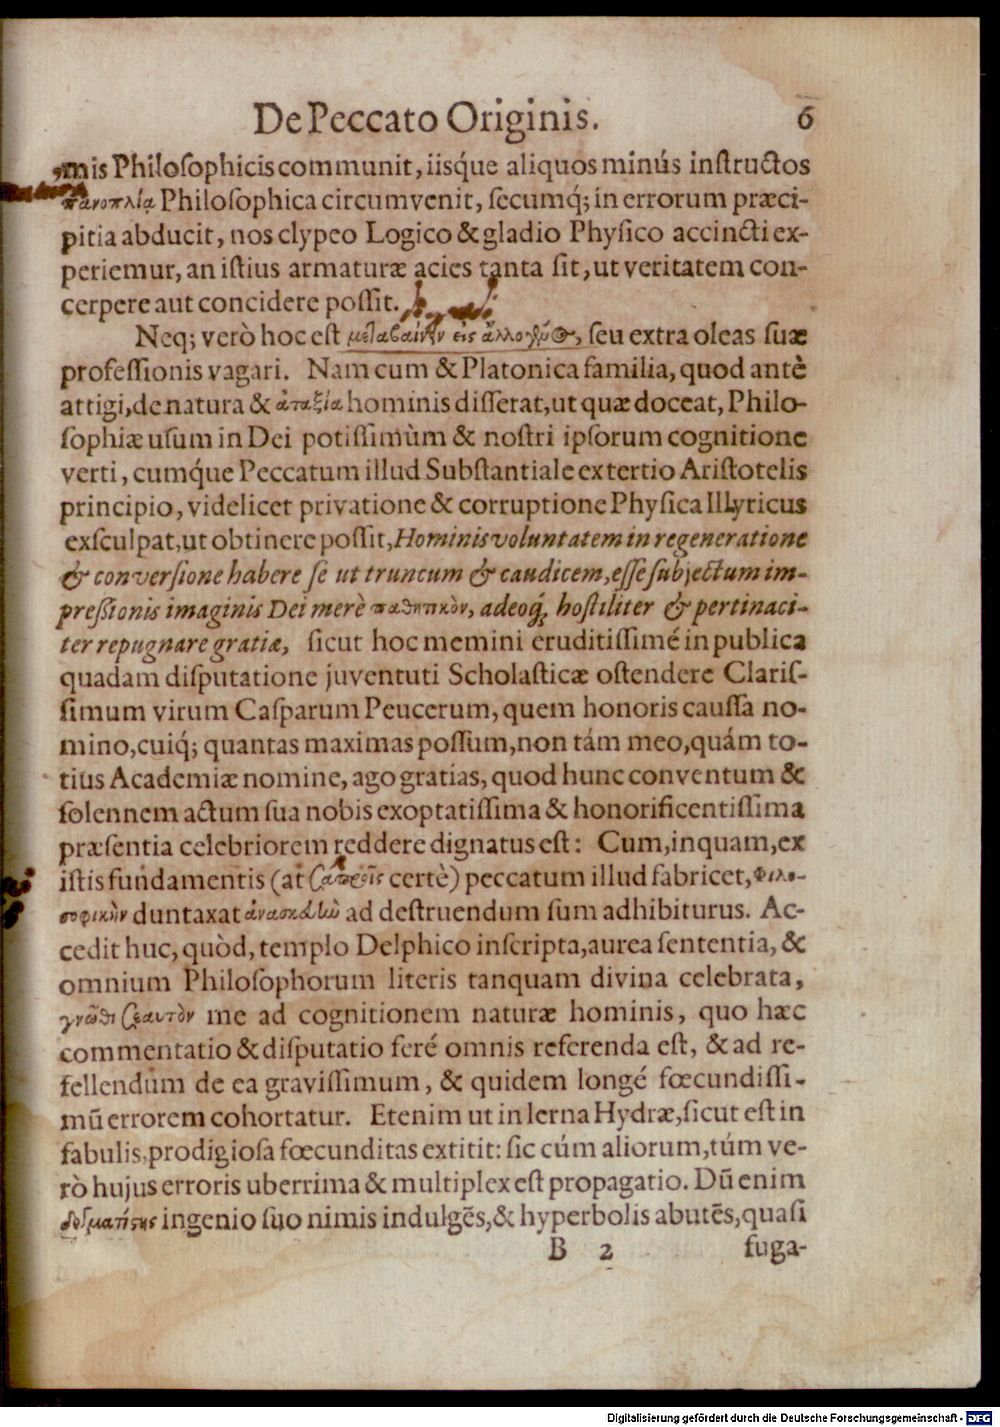 De Peccato Originis. 6
mis Philoſophicis communit, iisq́ue aliquos minús inſtructos
πανοπλίᾳ Philoſophica circumvenit, ſecumq́; in errorum præci-
pitia abducit, nos clypeo Logico & gladio Phyſico accincti ex-
periemur, an iſtius armaturæ acies tanta ſit, ut veritatem con-
cerpere aut concidere poſſit.
Neq; verò hoc eſt μεταβαίνειν εἰς ἄλλο γένος, ſeu extra oleas ſuæ
profeſſionis vagari. Nam cum & Platonica familia, quod antè
attigi, de natura & ἀταξίᾳ hominis diſſerat, ut quæ doceat, Philo-
ſophiæ uſum in Dei potiſſimùm & noſtri ipſorum cognitione
verti, cumq́ue Peccatum illud Subſtantiale ex tertio Ariſtotelis
principio, videlicet privatione & corruptione Phyſica Illyricus
exſculpat, ut obtinere poſſit, Hominis voluntatem in regeneratione
& converſione habere ſe ut truncum & caudicem, eſſe ſubjectum im-
preſſionis imaginis Dei merè παθητικὸν, adeoq́; hoſtiliter & pertinaci-
ter repugnare gratiæ, ſicut hoc memini eruditiſſimé in publica
quadam diſputatione juventuti Scholaſticæ oſtendere Clariſ-
ſimum virum Caſparum Peucerum, quem honoris cauſſa no-
mino, cuiq́; quantas maximas poſſum, non tám meo, quám to-
tius Academiæ nomine, ago gratias, quod hunc conventum &
ſolennem actum ſua nobis exoptatiſſima & honorificentiſſima
præſentia celebriorem reddere dignatus eſt: Cum, inquam, ex
iſtis fundamentis (at σαθροῖς certè) peccatum illud fabricet, Φιλο-
σοφικὴν duntaxat ἀνασκευὼ ad deſtruendum ſum adhibiturus. Ac-
cedit huc, quòd, templo Delphico inſcripta, aurea ſententia, &
omnium Philoſophorum literis tanquam divina celebrata,
γνῶθι σεαυτὸν me ad cognitionem naturæ hominis, quo hæc
commentatio & diſputatio feré omnis referenda eſt, & ad re-
fellendum de ea graviſſimum, & quidem longé fœcundiſſi-
mū errorem cohortatur. Etenim ut in lerna Hydræ, ſicut eſt in
fabulis, prodigioſa fœcunditas extitit: ſic cúm aliorum, túm ve-
rò hujus erroris uberrima & multiplex eſt propagatio. Dū enim
δογματίστης ingenio ſuo nimis indulgēs, & hyperbolis abutēs, quaſi
B 2 fuga-
Digitalisierung gefördert durch die Deutsche Forschungsgemeinschaft - DFG